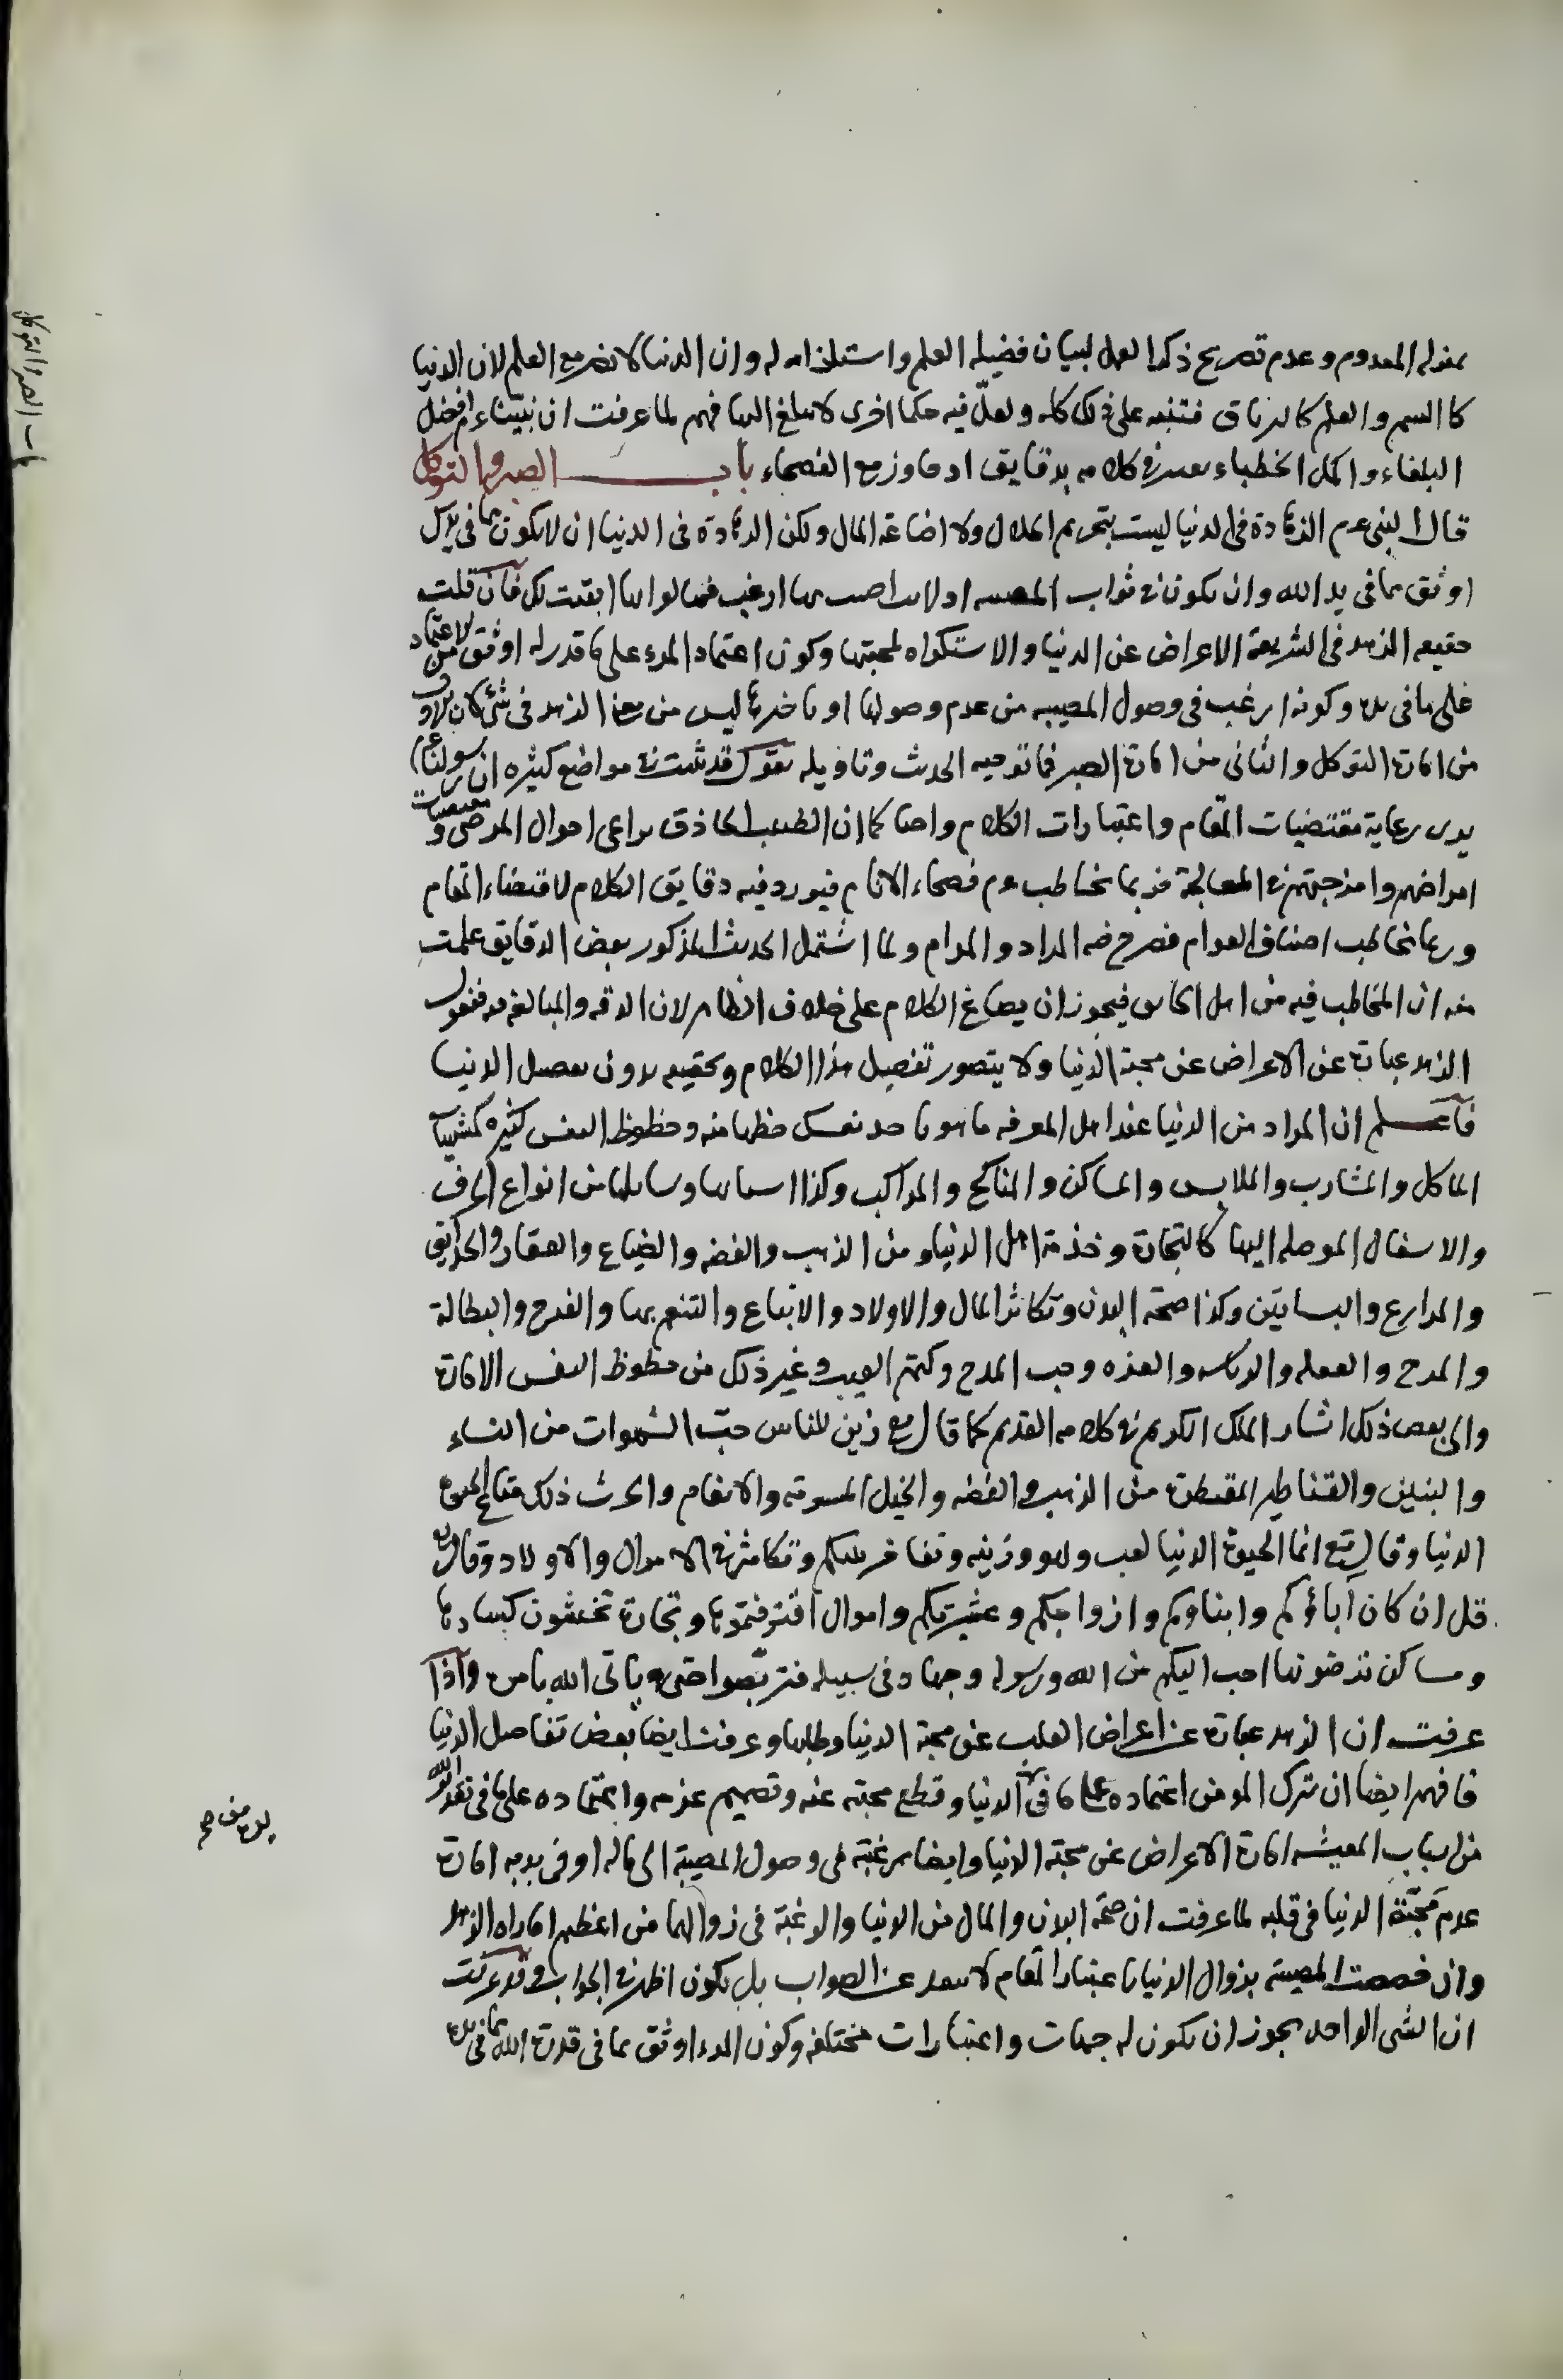 بمنزله المعدوم وعدم تصريح ذكر العمل لبيان فضيله العلم واستلزامه له وان الدنيا لا تضر مع العلم لان الدنيا
كالسم والعلم كالترياق فتنبه على ذلك كله ولعلّ فيه حكما اخرى لا يبلغ اليها فهم لما عرفت ان نبيّنا عم افضل
البلغاء واكمل الخطباء يعتبر في كلامه بدقايق ادا حاوز مع الفصحاء باب الصبر والتوكل
قال النبى عم الزهادة فى الدنيا ليست بتحريم الحلال ولا اضاعة المال ولكن الزهادة فى الدنيا ان لا يكون بما فى يدك
اوثق بما فى يد الله وان يكون فى ثواب المصيبه اذ لانت اصبت بها ارغب فيها لو انها ابقيت لك فان قلت
حقيقه الزهد فى الشريعة الاعراض عن الدنيا والاستكراه لمحبتها وكون اعتماد المرء على ما قدر له اوثق من الاعتماد
على ما فى يده وكونه ارغب فى وصول المصيبه من عدم وصولها او تاخرها ليس من معنى الزهد فى شئ كان الاول
من امارة التوكل والثانى من امارة الصبر فما توجيه الحديث وتاويله نقول قد ثبت فى مواضع كثيره ان رسولنا عم
يرى رعاية مقتضيات المقام واعتبارات الكلام واجبا كما ان الطبيب الحاذق يراعى احوال المرضى و مقتضيات
امراضهم وامزجتهم فى المعالجة فربما يخاطب عم فصحاء الانام فيورد فيه دقايق الكلام لاقتضاء المقام
وربما يخاطب اصناف العوام فصرح فيه المراد والمرام ولما اشتمل الحديث المذكور ببعض الدقايق علمت
منه ان المخاطب فيه من اهل فيجوز ان يصاغ الكلام على خلاف الظاهر لان الدقه والمبالغه فيه فنقول
الزهد عبارة عن الاعراض عن محبة الدنيا ولا يتصور تفصيل هذا الكلام وتحقيقه بدون تفصيل الدنيا
فاعلم ان المراد من الدنيا عند اهل المعرفه ما هو تاخذ نفسك حظها منه وحظوظ النفس كثيره كمشتهيات
الماكل والمشارب والملابس والمساكن والمناكح والمراكب وكذا اسبابها وسايلها من انواع الحرف
والاشغال الموصله اليها كالتجارة وخدمة اهل الدنيا ومن الذهب والفضه والضياع والعقار والحدايق
والمزارع والبساتين وكذا صحة البدن وتكاثر المال والاولاد والاتباع والتنعم بها والفرح والبطالة
والمرح والغفله والرياسه والعزه وحب المدح وكتم العيب وغير ذلك من حظوظ النفس الامارة
والى بعض ذلك اشار الملك الكريم فى كلامه القديم كما قال تع زين للناس حبّ الشهوات من النساء
والبنين والقناطير المقنطرة من الذهب والفضه والخيل المسومة والانعام والحرث ذلك متاع الحيوة
الدنيا وقال تع انما الحيوة الدنيا لعب ولهو وزينه وتفاخر بينكم وتكاثر فى الاموال والاولاد وقال تع
قل ان كان آباؤكم وابناؤكم وازواجكم وعشيرتكم واموال اقترفتموها وتجارة تخشون كسادها
ومساكن ترضونها احب اليكم من الله ورسوله وجهاد فى سبيله فتربّصوا حتى ياتى الله بامره واذا
عرفت ان الزهد عبارة عن اعراض القلب عن محبة الدنيا وطلبها وعرفت ايضا بعض تفاصيل الدنيا
فافهم ايضا ان ترك المؤمن اعتماده على ما فى الدنيا وقطع محبته عنه وتصميم عزمه واعتماده على ما فى تقدير الله
من اسباب المعيشه امارة الاعراض عن محبة الدنيا وايضا رغبته فى وصول المصيبة الى ماله او فى بدنه امارة
عدم محبّة الدنيا فى قلبه لما عرفت ان صحة البدن والمال من الدنيا والرغبة فى زوالهما من اعظم امارات الزهد
وان خصصت المصيبة بزوال الدنيا باعتبار المقام لا يبعد عن الصواب بل يكون اظهر فى الجواب وقد عرفت
ان الشى الواحد يجوز ان يكون له جهات واعتبارات مختلفه وكون المرء اوثق بما فى قدرة الله بما فى يده
يده من صح
باب الصبر والتوكل